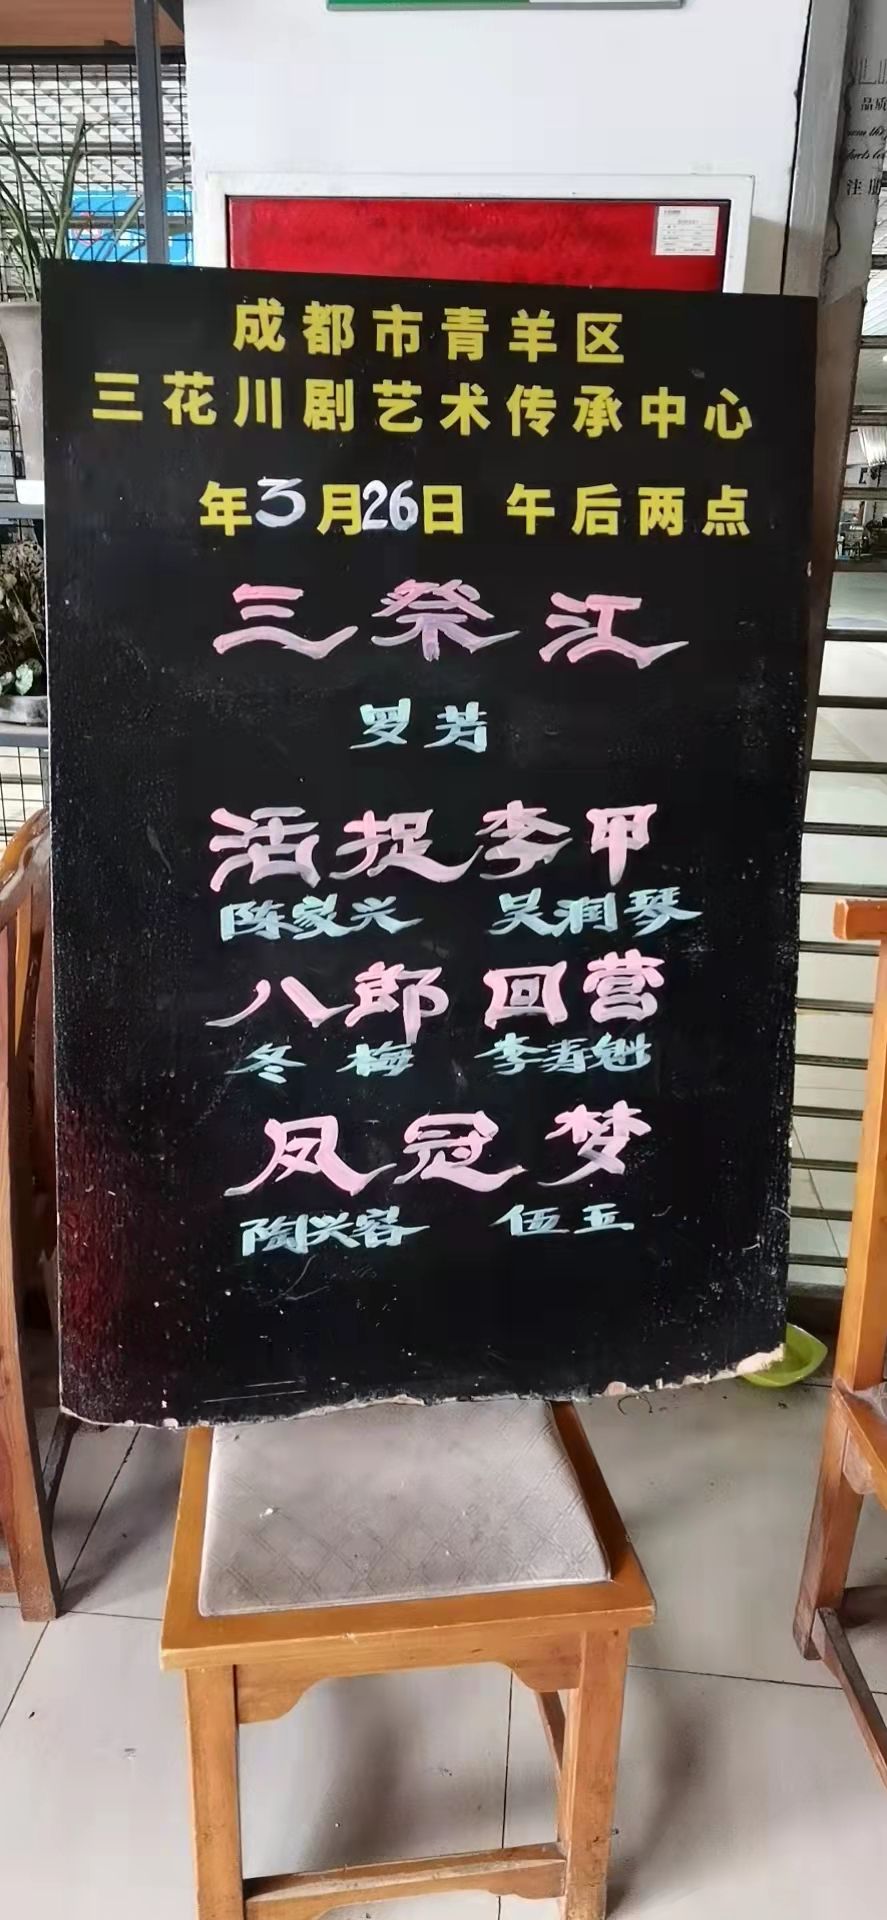 成都市青羊区
三花川剧艺术传承中心
年3月26日 午后两点
三祭江
罗芳
活捉李甲
陈家兴 吴润琴
八郎回营
冬梅 李寿魁
凤冠梦
陶兴蓉 伍五
品质
注册